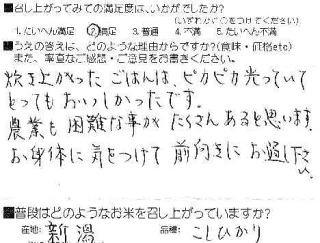 ■召し上がってみての満足度は、いかがでしたか?
(いずれかに○をつけてください)
1.たいへん満足 ②満足 3.普通 4.不満 5.たいへん不満
■うえの答えは、どのような理由からですか?(食味・価格etc)
また、率直なご感想・ご意見をお書きください。
炊き上がったごはんは、ピカピカ光っていて
とってもおいしかったです。
農業も困難な事がたくさんあると思います。
お身体に気をつけて前向きにお過し下さい。
■普段はどのようなお米を召し上がっていますか?
産地: 新潟 品種: こしひかり